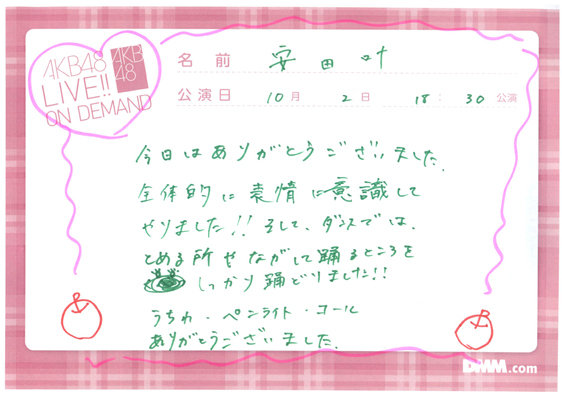 AKB48
LIVE!!
ON DEMAND
AKB
48
名前 安田叶
公演日 10月 2日 18:30公演
今日はありがとうございました.
全体的に表情に意識して
やりました!!そして、ダンスでは、
とめる所やながして踊るところを
しっかり踊どりました!!
うちわ・ペンライト・コール
ありがとうございました.
DMM.com